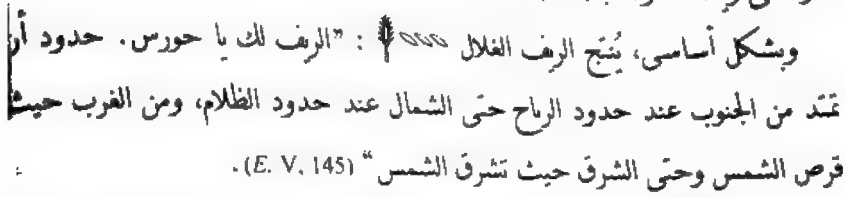 وبشكل أساسى، يُنتج الريف الغلال : "الريف لك يا حورس. حدود
تمتد من الجنوب عند حدود الرياح حتى الشمال عند حدود الظلام، ومن الغرب حيث
قرص الشمس وحتى الشرق حيث تشرق الشمس" (E. V, 145).